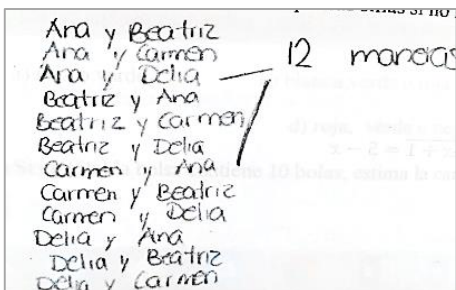 Ana y Beatriz
Ana y Carmen
Ana y Delia
12 maneras
Beatriz y Ana
Beatriz y Carmen
Beatriz y Delia
Carmen y Ana
Carmen y Beatriz
Carmen y Delia
Delia y Ana
Delia y Beatriz
Delia y Carmen